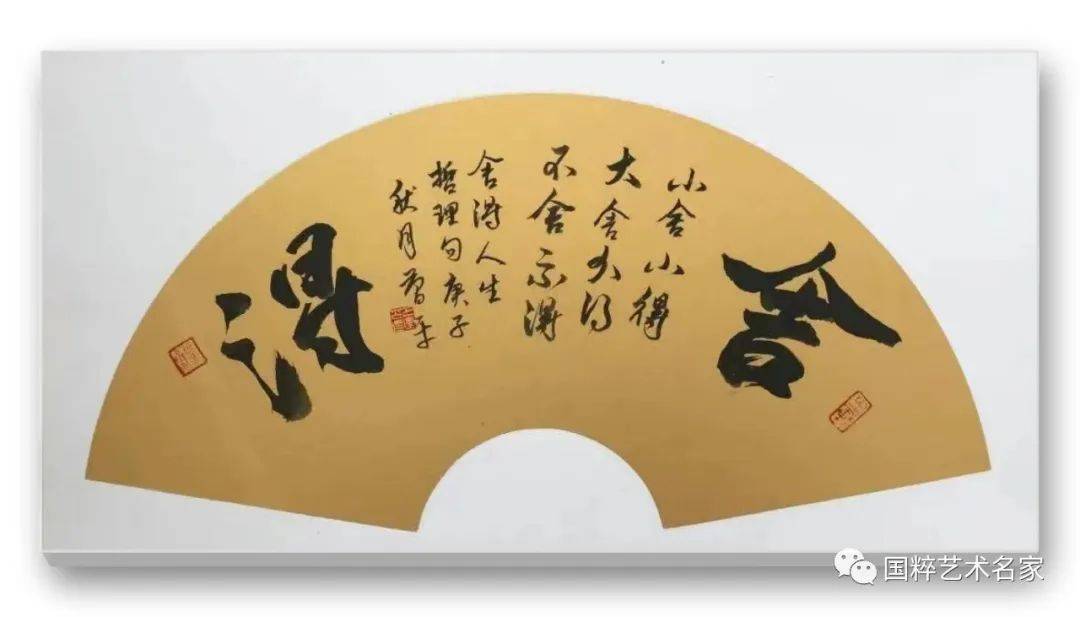 舍
小舍小得
大舍大得
不舍不得
舍得人生
哲理句庚子
秋月平
得
国粹艺术名家